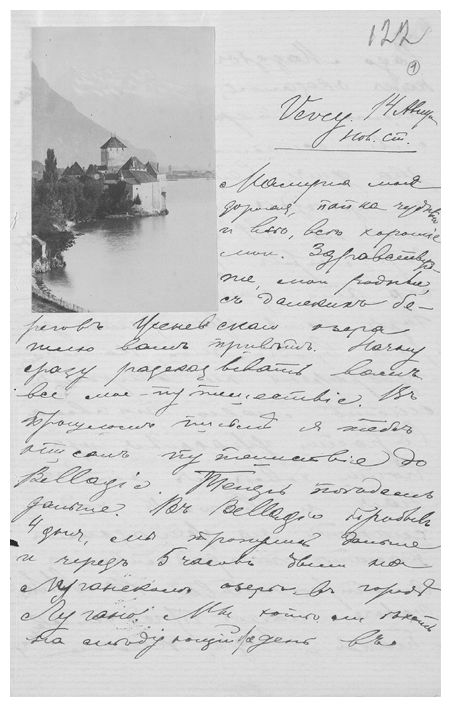 122
1
Vevey. 14 Авгу
нов. ст.
Мамуся моя
дорогая, папка чудный
и все, все хорошие
мои. Здравствуй-
те, мои родные,
съ далекихъ бе-
реговъ Женевскаго озера
шлю вамъ привѣтъ. Начну
сразу разсказывать вамъ
все мое путешествіе. Въ
прошломъ письмѣ я
путешествіе до
Bellagio. Теперь
дальше. Въ Bellagio пробывъ
4 дня, мы тронулись дальше
и черезъ 5 часовъ были на
Луганскомъ озерѣ, въ городѣ
Лугано. Мы хотѣли ѣхать
на слѣдующій день въ